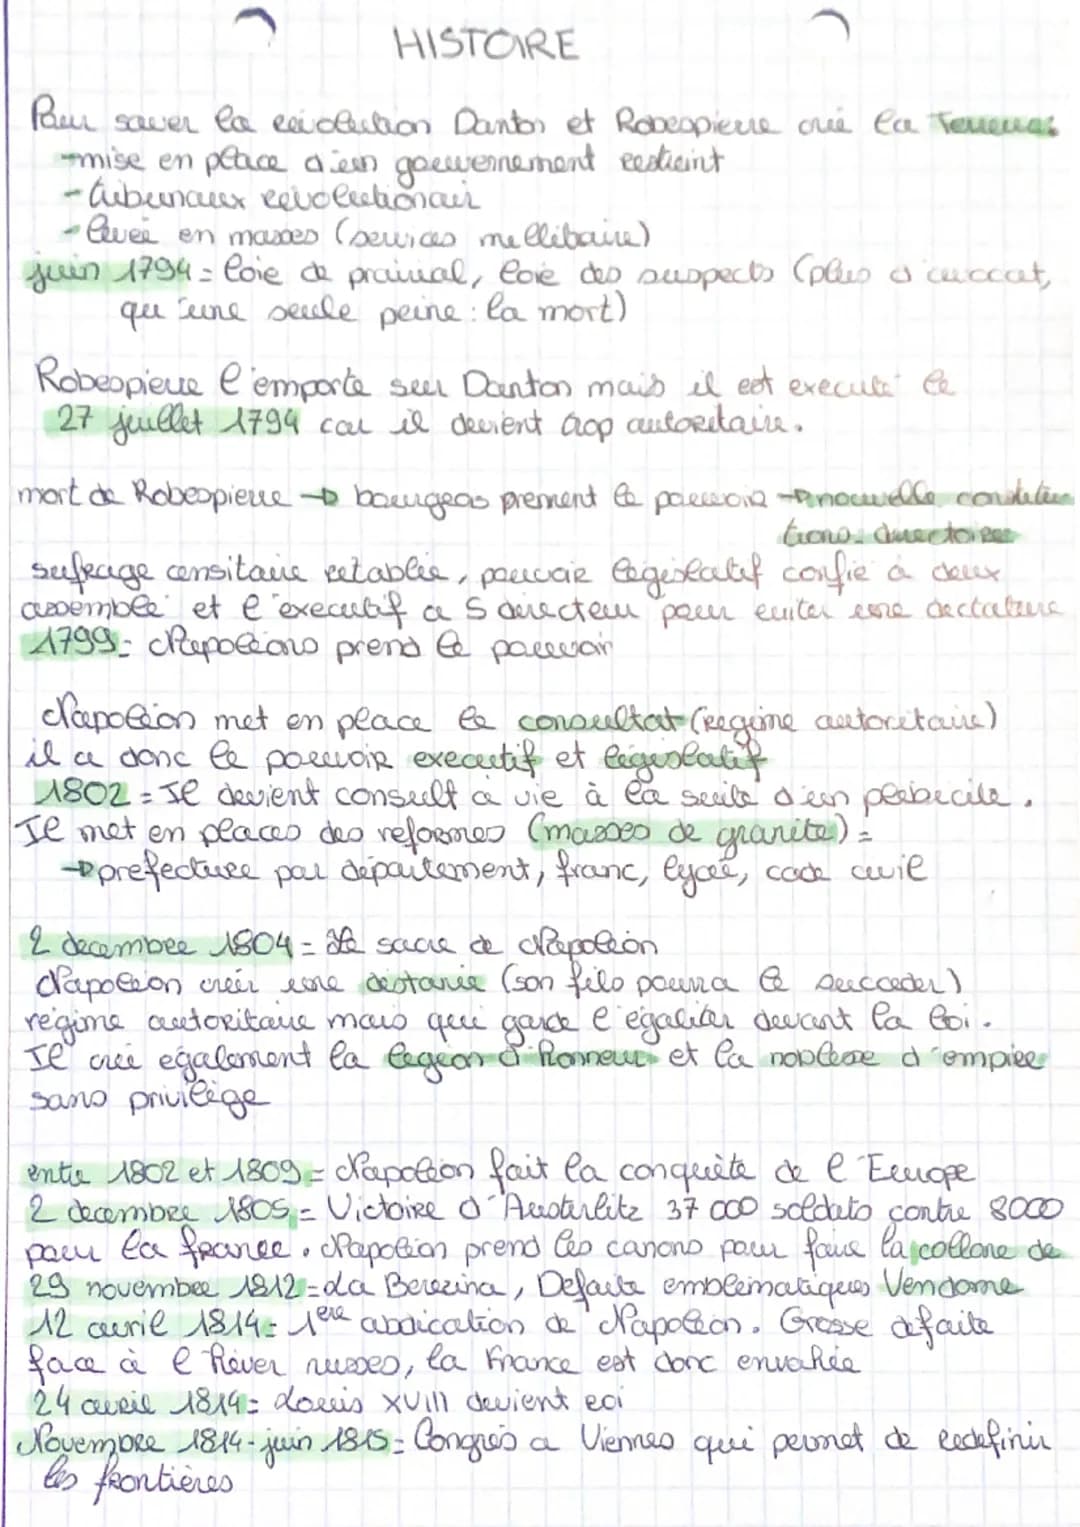 HISTOIRE
Pour sauver la révolution Danton et Robespierre crié la Terreur:
-mise en place d'un gouvernement restreint
- tribunaux revolutionair
- levée en masses (services mellitaire)
juin 1794 = loie de prairial, loie des suspects (plus d'avocat,
qu'une seule peine : la mort)
Robespierre l'emporte sur Danton mais il est executé le
27 juillet 1794 car il devient trop autoritaire.
mort de Robespierre → bourgeois prennent le pouvoir → nouvelle
tions directoires
sufrage censitaire retablie, pouvoir legislatif confié à deux
assemblé et l'executif a 5 directeur pour eviter une dectature
1799 = Napoléons prend le pouvoir
Napoléon met en place le consultat (regime autoritaire)
il a donc le pouvoir executif et legislatif
1802 = Il devient consult a vie à la suite d'un plebicite.
Il met en places des reformes (masses de granite) =
→ prefecture par département, franc, lycée, code civil
2 decembre 1804 = Le sacre de Napoléon
Napoléon créer une distanie (son fils pourra le succeder)
régime autoritaire mais qui garde l'égaliter devant la loi.
Il crée egalement la legion d'honneur et la noblesse d'empire
sans privilège
entre 1802 et 1809 = Napoléon fait la conquète de l'Europe
2 decembre 1805 = Victoire d'Austerlitz 37 000 soldats contre 8000
pour la france. Napoléon prend les canons pour faire la collone de
29 novembre 1812 = La Berezina, Defaite emblematiques Vendome
12 avril 1814 = 1ere abdication de Napoléon. Grosse défaite
face à l'hiver russes, la France est donc envahie
24 avril 1814 = Louis XVIII devient roi
Novembre 1814 - juin 1815 = Congrès a Viennes qui permet de redefinir
les frontières